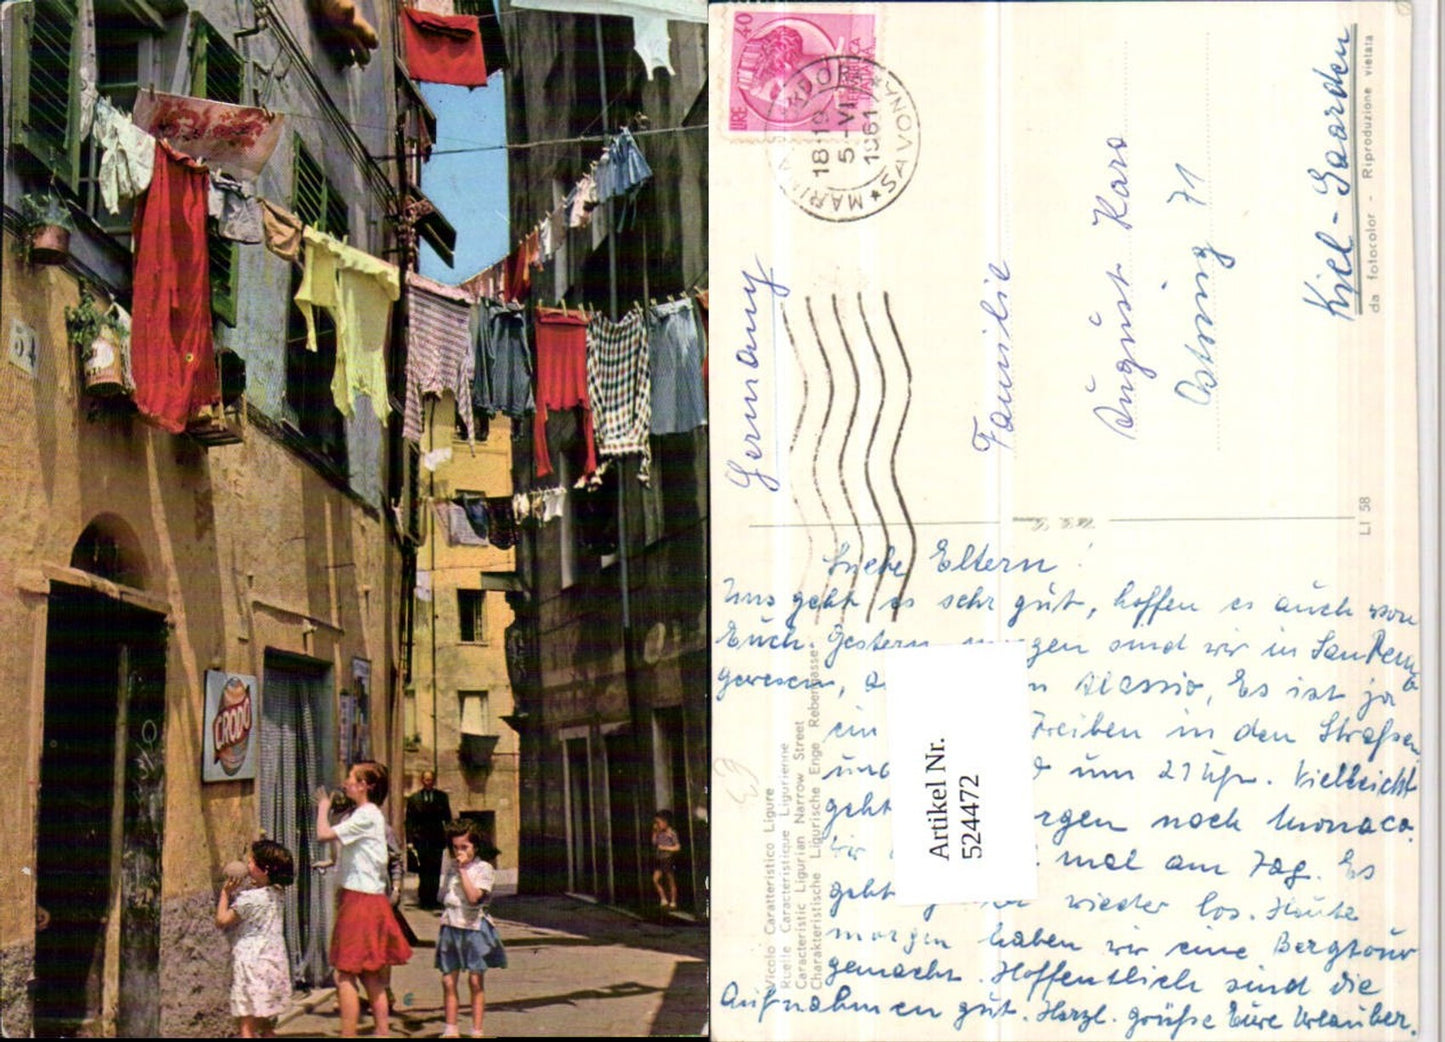 54
CRODO
LIRE 40
18-19
5-VI
1961
SAVONA
Germany
Familie
August Karo
Ostring 71
Kiel-Gaarden
da fotocolor - Riproduzione vietata
LI 58
Vicolo Caratteristico Ligure
Ruelle Caractéristique Ligurienne
Characteristic Ligurian Narrow Street
Charakteristische Ligurische Enge Rebengasse
Artikel Nr.
524472
Liebe Eltern!
Uns geht es sehr gut, hoffen es auch von
Euch. Gestern sind wir in San Remo
gewesen, Alassio, Es ist ja
ein Treiben in den Straßen
und um 21 Uhr. Vielleicht
geht noch Monaco.
wir mal am Tag. Es
geht wieder los. Heute
morgen haben wir eine Bergtour
gemacht. Hoffentlich sind die
Aufnahmen gut. Herzl. Grüße Eure Urlauber.